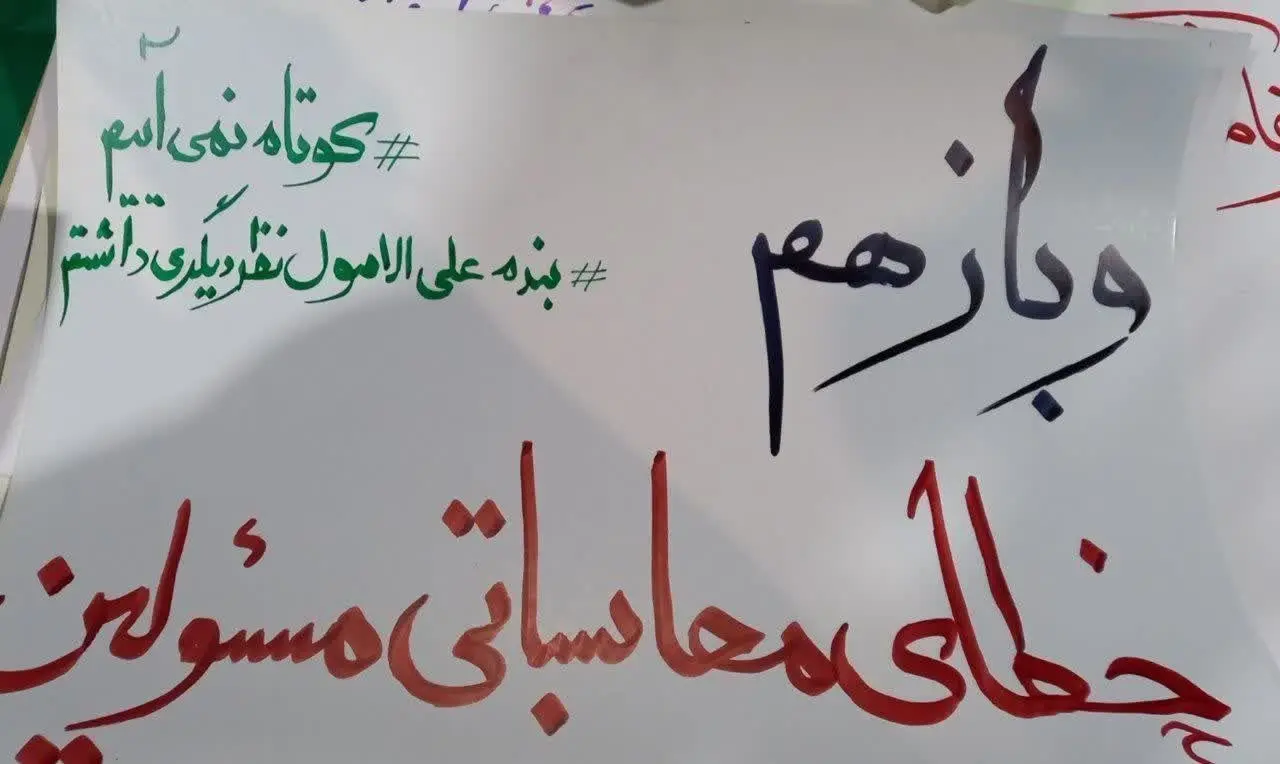 و باز هم
#کوتاه نمی آییم
#بنده علی الاصول نظر دیگری داشتم
خطای محاسباتی مسئولین